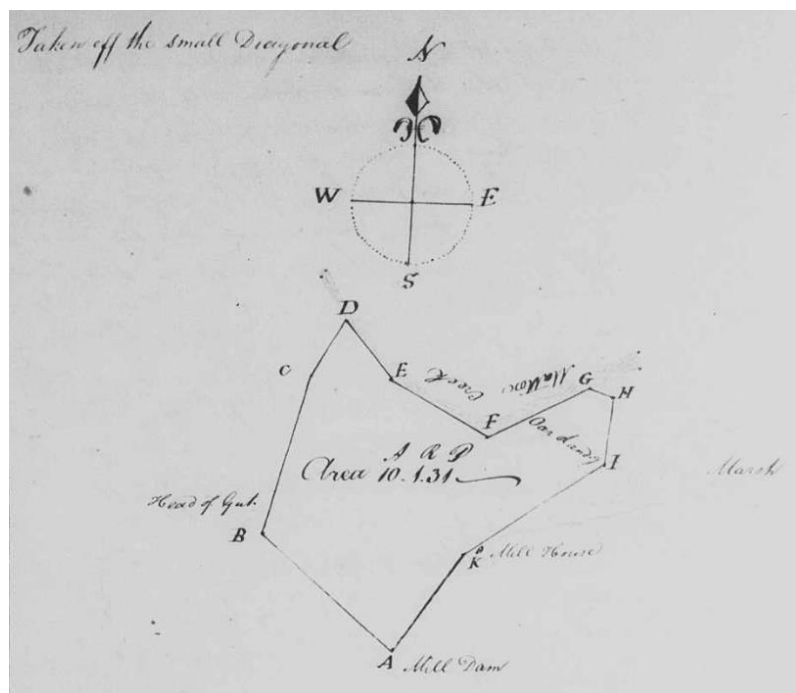 Taken off the small Diagonal
N
W E
S
D
C E
Creek
G H
F
I
A R P
Area 10.1.31
Marsh
Head of Gut.
B
K Mill House
A Mill Dam